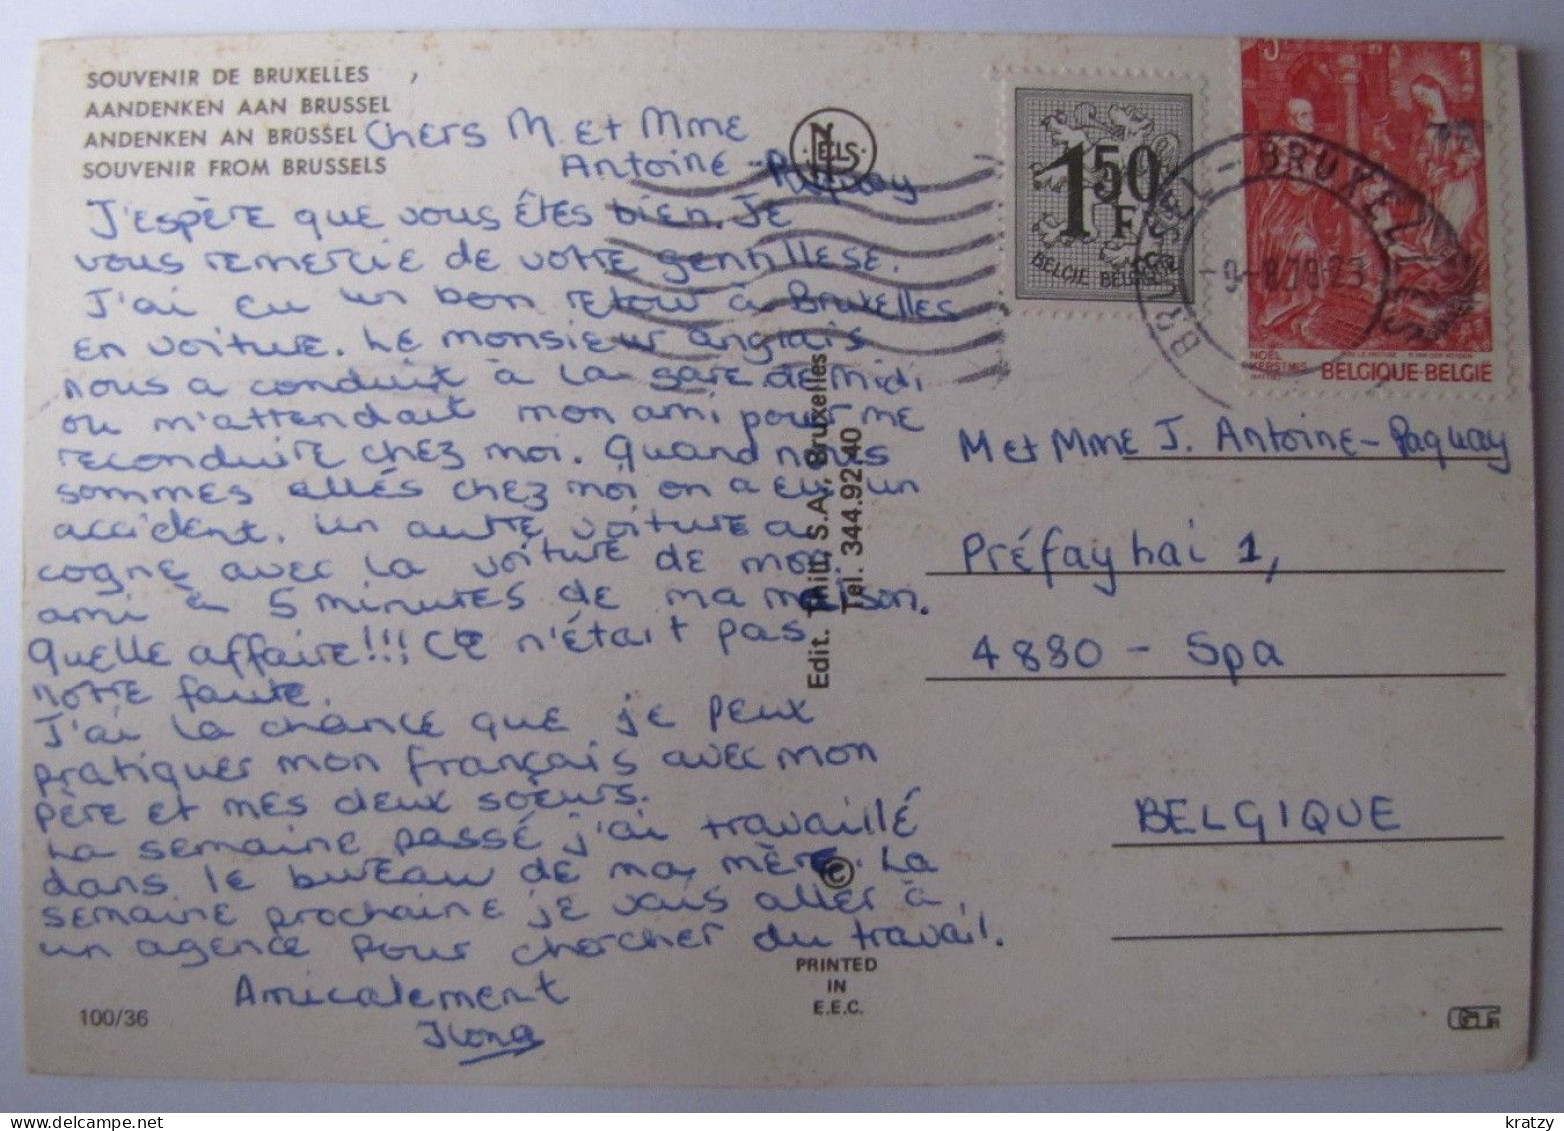 SOUVENIR DE BRUXELLES
AANDENKEN AAN BRUSSEL
ANDENKEN AN BRÜSSEL
SOUVENIR FROM BRUSSELS
Chers M. et Mme
Antoine-Paquay
J'espère que vous êtes bien. Je
vous remercie de votre gentillese.
J'ai eu un bon retour à Bruxelles
en voiture. Le monsieur anglais
nous a conduit à la gare de midi
ou m'attendait mon ami pour me
reconduire chez moi. Quand nous
sommes allés chez moi on a eu un
accident. un autre voiture a
cogné avec la voiture de mon
ami à 5 minutes de ma maison.
Quelle affaire!!! Ce n'était pas
notre faute.
J'ai la chance que je peux
pratiquer mon français avec mon
père et mes deux soeurs.
La semaine passé j'ai travaillé
dans le bureau de ma mère. La
semaine prochaine je vais aller à
un agence pour chercher du travail.
Amicalement
Ilona
100/36
NELS
Edit. Thill, S.A., Bruxelles
Tel. 344.92.40
©
PRINTED
IN
E.E.C.
1F50
BELGIE BELGIQUE
BRUXELLES
BRUSSEL
NOËL
KERSTMIS
BELGIQUE-BELGIE
M et Mme J. Antoine-Paquay
Préfayhai 1,
4880 - Spa
BELGIQUE
kratzy
delcampe.net